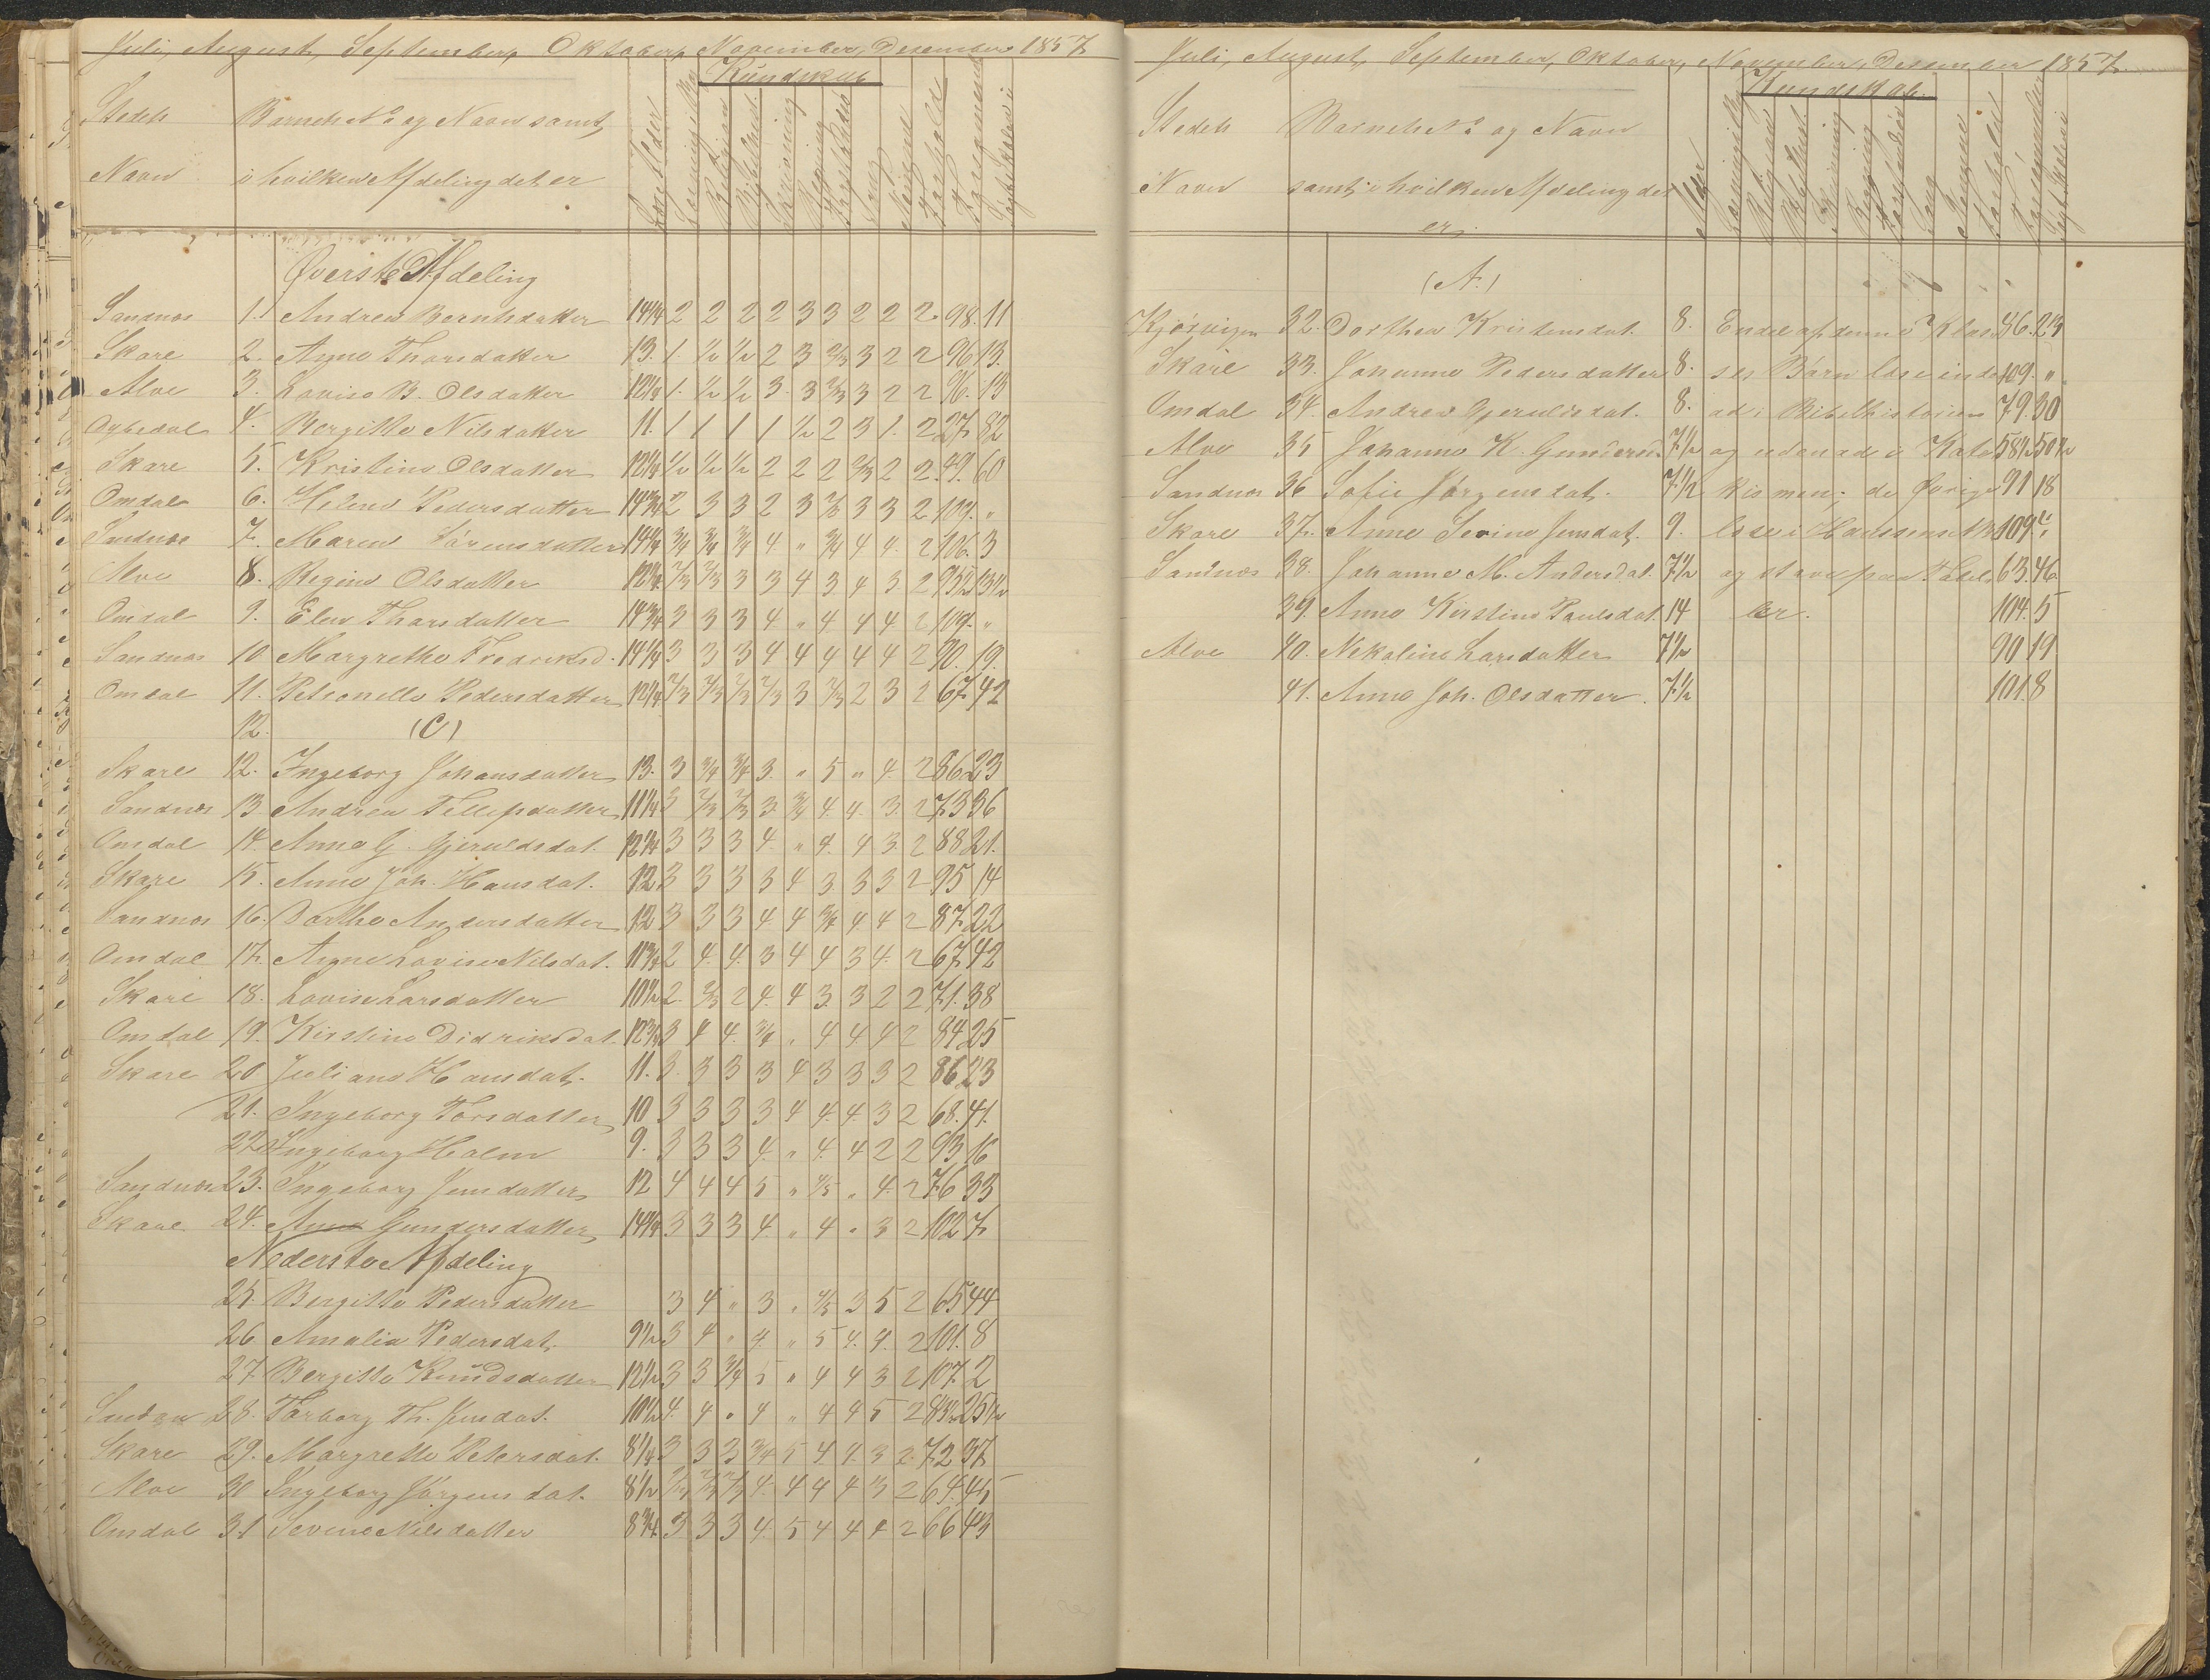 Juli, August, September, Oktober, November, Desember 1857
Kundskab
Stedets Barnets No og Navn samt
Navn i hvilken Afdeling det er
Øverste Afdeling
Sandnæs 1. Andrea Berntsdatter 14 1/4 2 2 2 2 3 3 2 2 2 98. 11
Skare 2. Anne Thorsdatter 13. 1. 1/2 1/2 2 3 2/3 3 2 2 96 13.
Alve 3. Lovise B. Olsdatter 12 1/4 1. 1/2 1/2 3. 3 2/3 3 2 2 96. 13
4. Bergitte Nilsdatter 11. 1 1 1 1 1/2 2 3 1. 2 27 82
Skare 5. Kristine Olsdatter 12 1/4 1/2 1/2 1/2 2 2 2 2/3 2 2 49. 60
Omdal 6. Helene Pedersdatter 14 3/4 2 3 3 2 3 2/3 3 3 2 109. "
Sandnæs 7. Maren Sörensdatter 14 1/4 3/4 3/4 3/4 4 " 3/4 4 4. 2 106. 3
Alve 8. Regine Olsdatter 12 1/2 2/3 2/3 3 3 4 3 4 3 2 95 1/2 13 1/2
Omdal 9. Elen Thorsdatter 14 3/4 3 3 3 4 " 4. 4 4 2 109. "
Sandnæs 10 Margrethe Fredriksd. 14 1/4 3 3 3 4 4 4 4 4 2 90. 19.
Omdal 11. Petronelle Pedersdatter 12 1/4 2/3 2/3 2/3 2/3 3 2/3 2 3 2 67 42
12. (C)
Skare 12. Ingeborg Johansdatter 13. 3 3/4 3/4 3. " 5 " 4. 2 86 23
Sandnæs 13 Andrea Tellefsdatter 11 1/4 3 2/3 2/3 3 3/4 4. 4. 3. 2 73 36
Omdal 14. Anne G. Gjeruldsdat. 12 1/4 3 3 3 4. " 4. 4 3 2 88 21.
Skare 15. Anne Joh. Hansdat. 12 3 3 3 3 4 3 3 3 2 95 14
Sandnæs 16. Dorthe Andersdatter 12 3 3 3 4 4 3/4 4 4 2 87 22
Omdal 17. Anne Lovise Nilsdat. 11 3/4 2 4. 4. 3 4 4 3 4. 2 67 42
Skare 18. Lovise Larsdatter 10 1/2 2. 2/3 2 4. 4 3. 3 2 2 71. 38
Omdal 19. Kirstine Didriksdat. 12 3/4 3 4 4. 3/4 " 4 4 4 2 84 25
Skare 20 Juliane Hansdat. 11. 3. 3 3 3 4 3 3 3 2 86 23
21. Ingeborg Torsdatter 10 3 3 3 3 4 4. 4. 3 2 68. 41.
22 Ingeborg Holm 9. 3 3 3 4. " 4. 4 2 2 93. 16
Sandnæs 23. Ingeborg Jensdatter 12 4 4 4 5 " 4/5 " 4. 2 76 33
Skare 24. Anne Gundersdatter 14 1/4 3 3 3 4 " 4 " 3 2 102 7
Nederste Afdeling
25. Bergitte Pedersdatter 3 4 " 3 " 4/5 3 5 2 65 44
26. Amalia Pedersdat. 9 1/2 3 4 " 4. " 5 4. 4. 2 101. 8
27 Bergitte Knudsdatter 12 1/2 3 3 3/4 5 " 4 4 3 2 107. 2
28. Torborg Th. Jensdat. 10 1/2 4. 4 " 4 " 4 4 5 2 83 1/2 25 1/2
Skare 29. Margrethe Petersdat. 8 1/4 3 3 3 3/4 5 4 4. 3 2 72 37
Alve 30 Ingeborg Jörgensdat. 8 1/2 2/3 2/3 2/3 4. 4 4 4 3 2 64. 45
Omdal 31 Severine Nilsdatter 8 3/4 3 3 3 4. 5 4 4 4 2 66 43
Juli, August, September, Oktober, November, Desember 1857.
Kundskab.
Stedets Barnets No og Navn
Navn samt i hvilken Afdeling det
er.
(A.)
Kjörvigen 32. Dorthea Kristensdat. 8. Endel af denne Klas- 86. 23
Skare 33. Johanne Pedersdatter 8. ses Börn læse inden- 109. "
Omdal 34. Andrea Gjeruldsdat. 8. ad i Bibelhistorien 79. 30
Alve 35 Johanne K. Gundersd. 7 1/2 og udenad i Kate- 58 1/2 50 1/2
Sandnæs 36 Sofie Jörgensdat. 7 1/2 kismen; de övrige 91 18
Skare 37. Anne Serine Jensdat. 9. læse i 109 "
Sandnæs 38. Johanne M. Andersdat. 7 1/2 og stave paa Tabel- 63. 46
39. Anne Kirstine Paulsdat. 14 ler. 104. 5
Alve 40. Nekoline Larsdatter 7 1/2 90 19
41. Anne Joh. Olsdatter. 7 1/2 101. 8